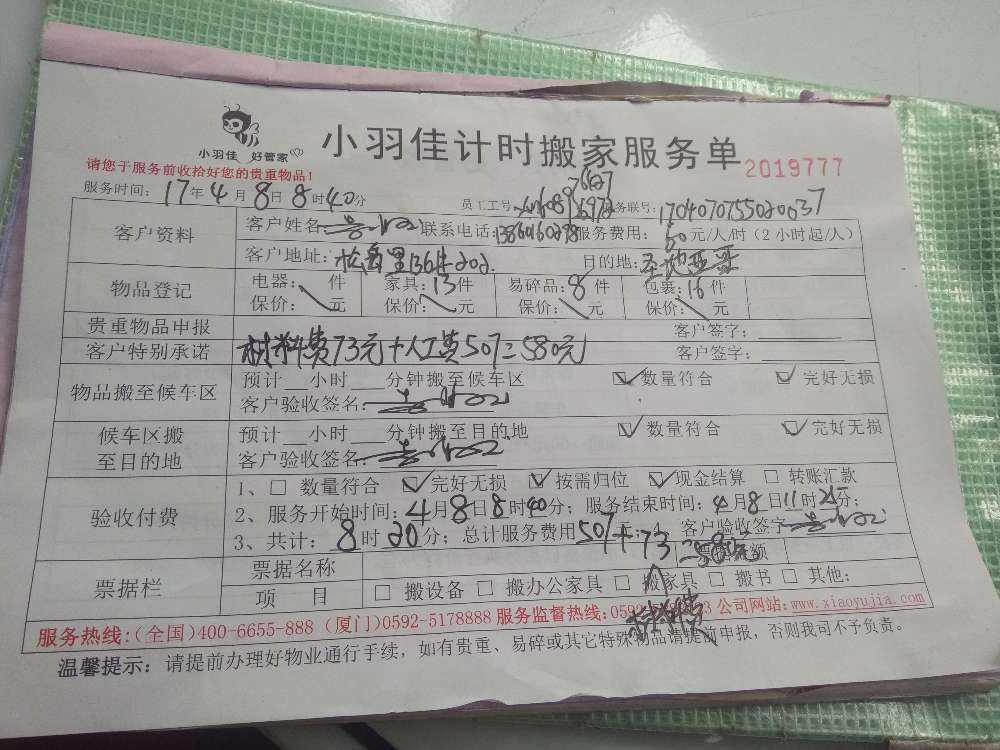 小羽佳 好管家
小羽佳计时搬家服务单 2019777
请您于服务前收拾好您的贵重物品!
服务时间: 17年4月8日8时40分 员工工号: 服务联号:
客户资料 客户姓名 联系电话: 服务费用: 60元/人/时(2小时起/人)
客户地址: 目的地:
物品登记 电器: 件 家具: 13件 易碎品: 8件 包裹: 16件
保价: 元 保价: 元 保价: 元 保价: 元
贵重物品申报 客户签字:
客户特别承诺 材料费73元+人工费507=580元 客户签字:
物品搬至候车区 预计__小时___分钟搬至候车区 ☑数量符合 ☑完好无损
客户验收签名:
候车区搬至目的地 预计__小时___分钟搬至目的地 ☑数量符合 ☑完好无损
客户验收签名:
验收付费 1、□ 数量符合 ☑完好无损 ☑按需归位 ☑现金结算 □ 转账汇款
2、服务开始时间: 4月8日8时40分; 服务结束时间: 4月8日11时25分;
3、共计: 8时20分; 总计服务费用507元+73 客户验收签字
票据栏 票据名称 票据金额
项 目 □ 搬设备 □ 搬办公家具 □ 搬家具 □ 搬书 □ 其他:
材料费
服务热线:(全国)400-6655-888 (厦门)0592-5178888 服务监督热线: 0592 3 公司网站: www.xiaoyujia.com
温馨提示: 请提前办理好物业通行手续, 如有贵重、易碎或其它特殊物品请提前申报, 否则我司不予负责。